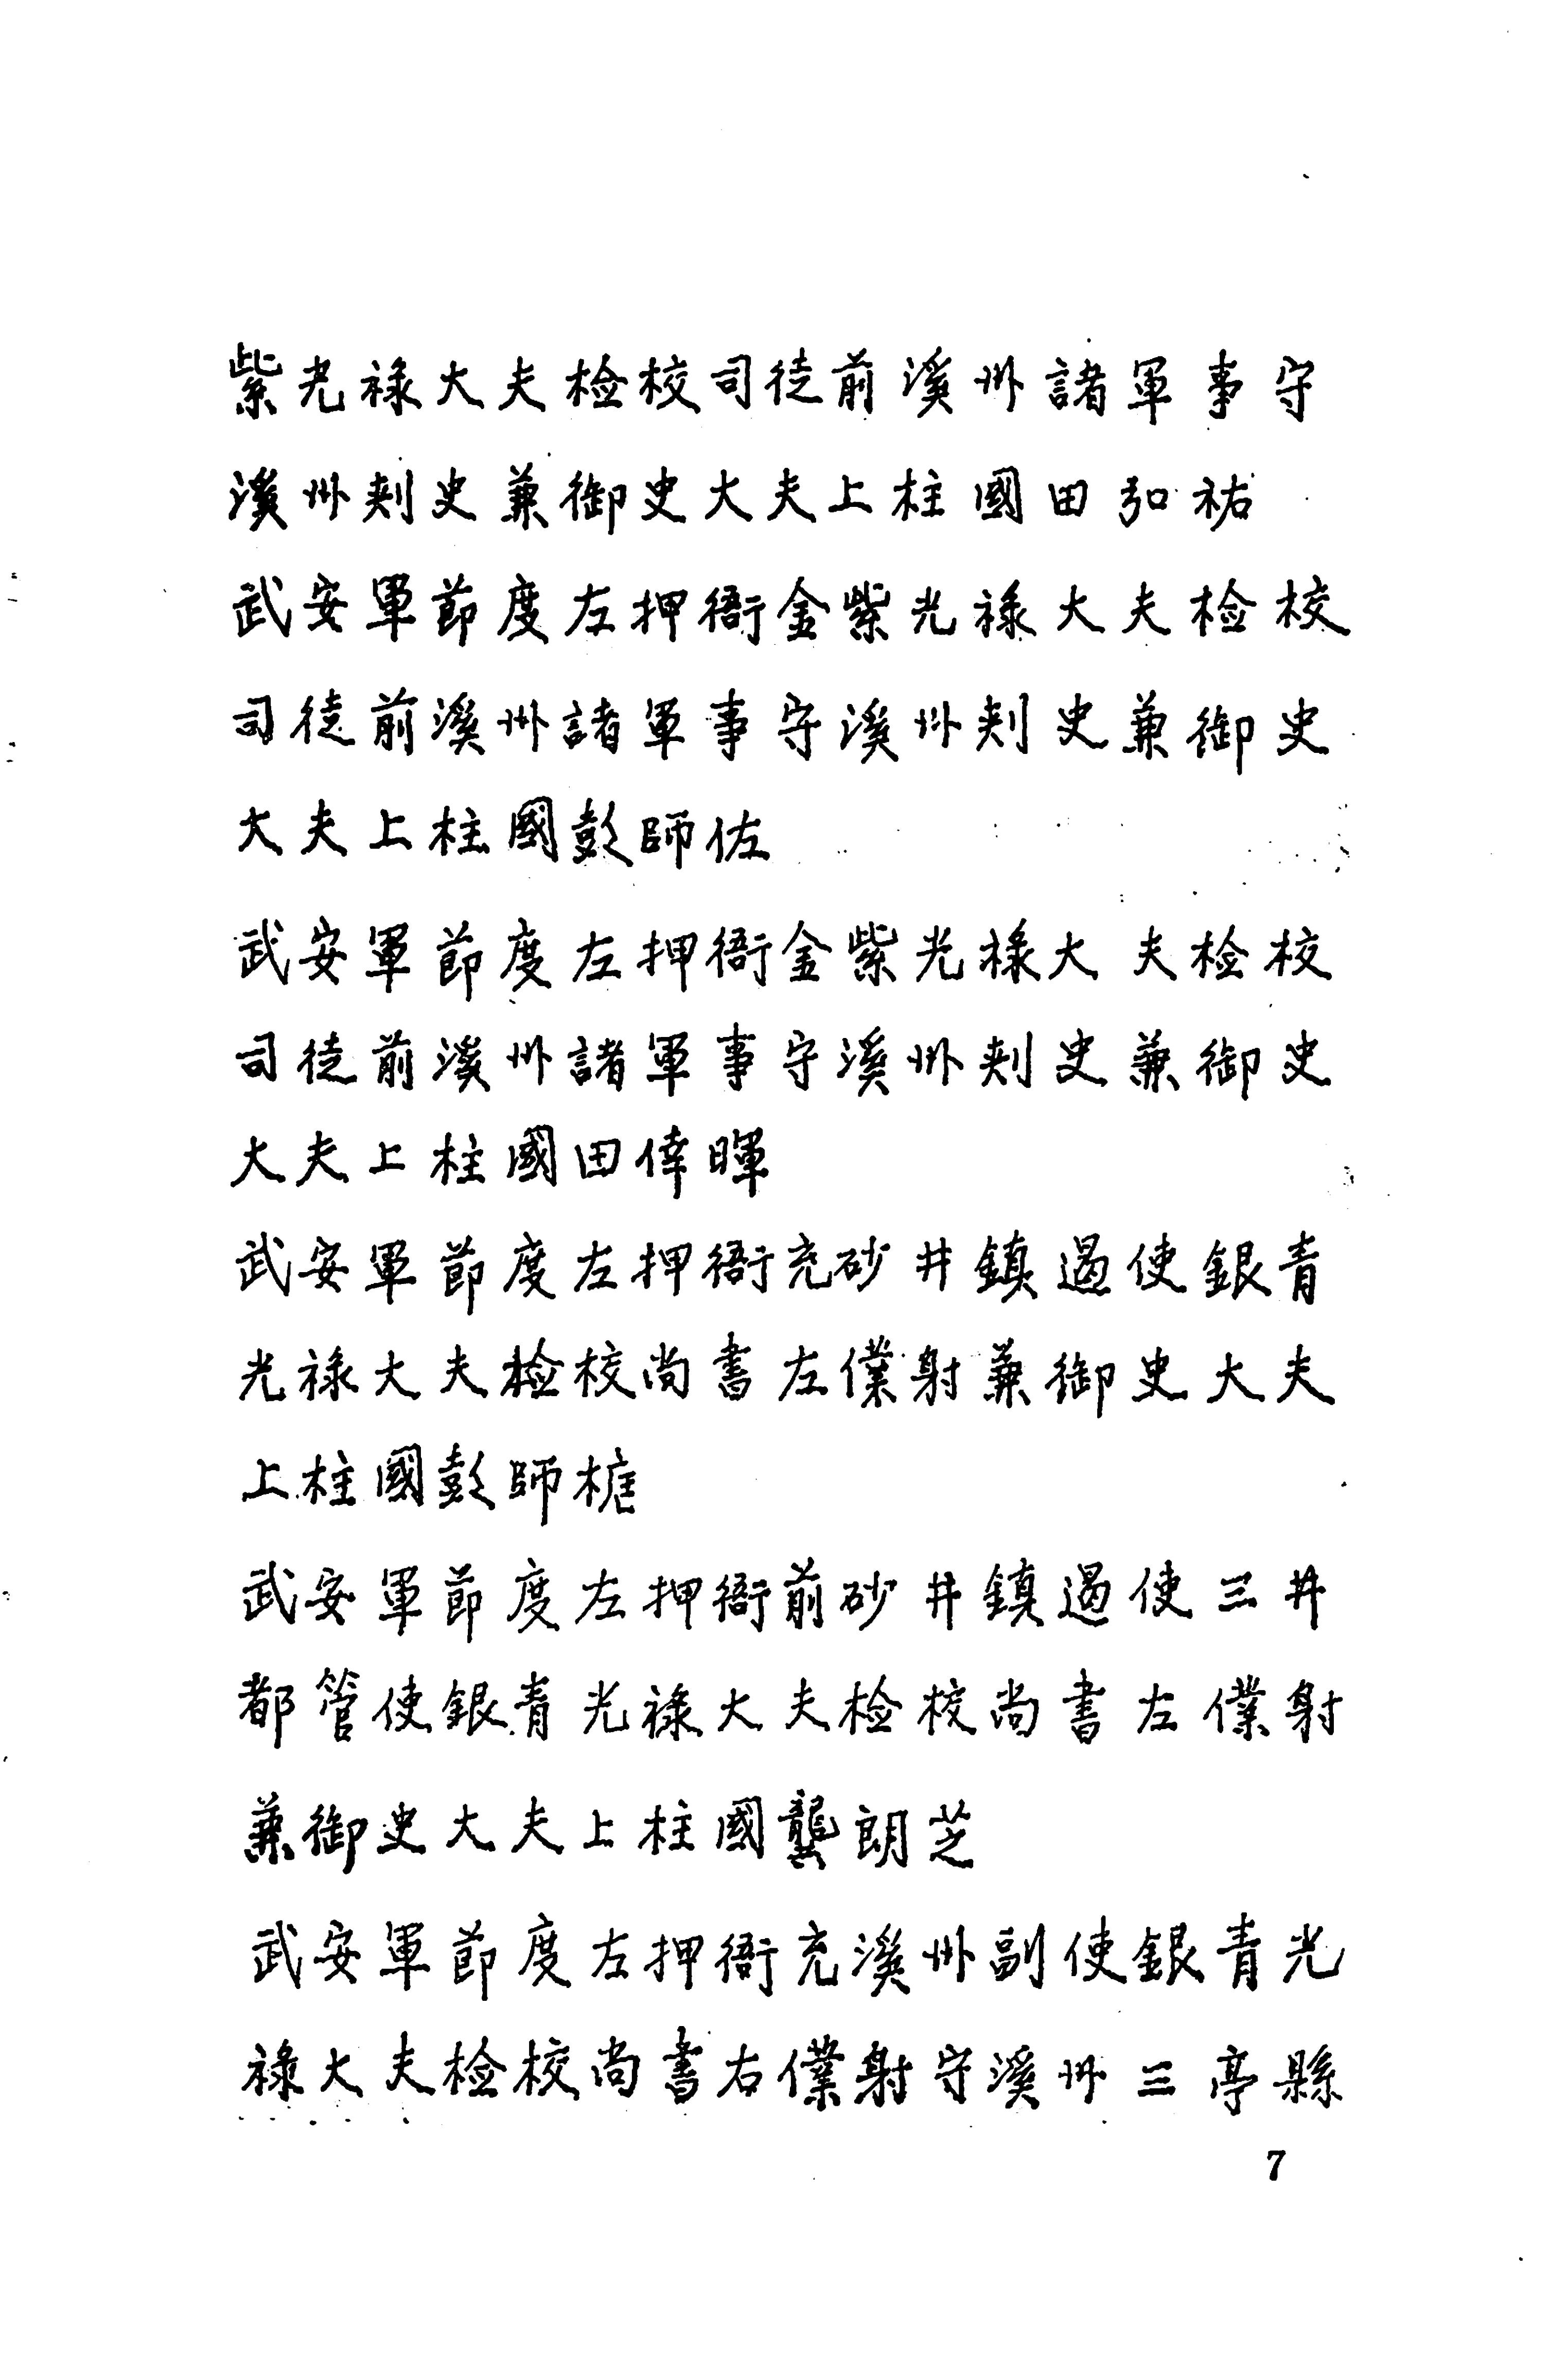 紫光禄大夫检校司徒前溪州諸軍事守
溪州刺史兼御史大夫上柱國田弘祐
武安軍節度左押衙金紫光禄大夫检校
司徒前溪州諸軍事守溪州刺史兼御史
大夫上柱國彭師佐
武安軍節度左押衙金紫光禄大夫检校
司徒前溪州諸軍事守溪州刺史兼御史
大夫上柱國田倖暉
武安軍節度左押衙充砂井鎮遏使銀青
光禄大夫检校尚書左僕射兼御史大夫
上柱國彭師
武安軍節度左押衙前砂井鎮遏使三井
都管使銀青光禄大夫检校尚書左僕射
兼御史大夫上柱國龔朗芝
武安軍節度左押衙充溪州副使銀青光
禄大夫检校尚書右僕射守溪州三亭縣
7